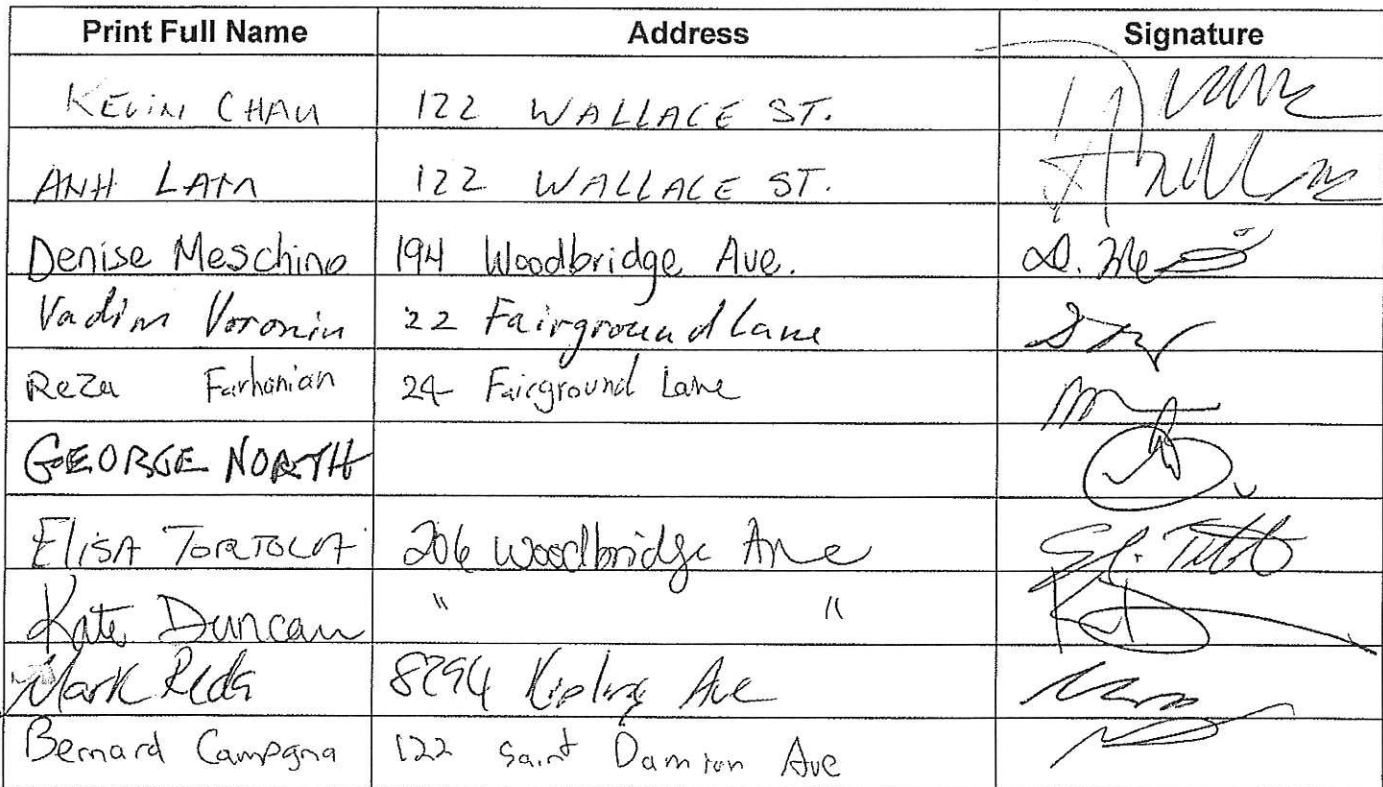 Print Full Name Address Signature
KEVIN CHAU 122 WALLACE ST.
ANH LAM 122 WALLACE ST.
Denise Meschino 194 Woodbridge Ave. D. Me
Vadim Voronin 22 Fairground Lane
Reza Farhanian 24 Fairground Lane
GEORGE NORTH
ELISA TORTOLA 206 Woodbridge Ave
Kate Duncan " " KD
Mark 8294 Kipling Ave
Bernard Campagna 122 Saint Damian Ave